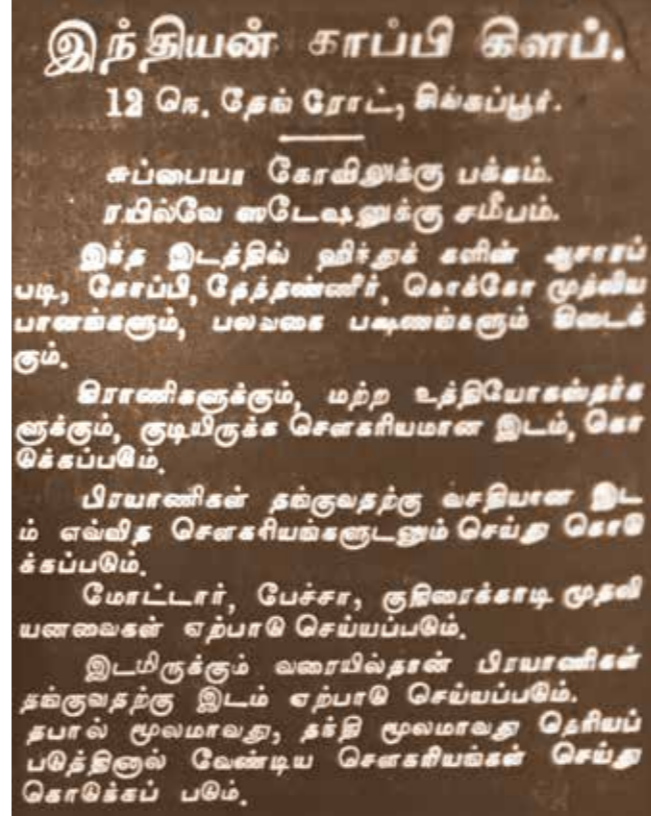 இந்தியன் காப்பி கிளப்.
12 நெ. தேங் ரோட், சிங்கப்பூர்.
சுப்பையா கோவிலுக்கு பக்கம்.
ரயில்வே ஸடேஷனுக்கு சமீபம்.
இந்த இடத்தில் ஹிந்துக் களின் ஆசாரப்
படி, கோப்பி, தேத்தண்ணீர், கொக்கோ முதலிய
பானங்களும், பலவகை பக்ஷணங்களும் கிடைக்
கும்.
கிராணிகளுக்கும், மற்ற உத்தியோகஸ்தர்க
ளுக்கும், குடியிருக்க சௌகரியமான இடம், கொ
டுக்கப்படும்.
பிரயாணிகள் தங்குவதற்கு வசதியான இட
ம் எவ்வித சௌகரியங்களுடனும் செய்து கொடு
க்கப்படும்.
மோட்டார், பேச்சா, குதிரைக்காடி முதலி
யனவைகள் ஏற்பாடு செய்யப்படும்.
இடமிருக்கும் வரையில்தான் பிரயாணிகள்
தங்குவதற்கு இடம் ஏற்பாடு செய்யப்படும்.
தபால் மூலமாவது, தந்தி மூலமாவது தெரியப்
படுத்தினால் வேண்டிய சௌகரியங்கள் செய்து
கொடுக்கப் படும்.